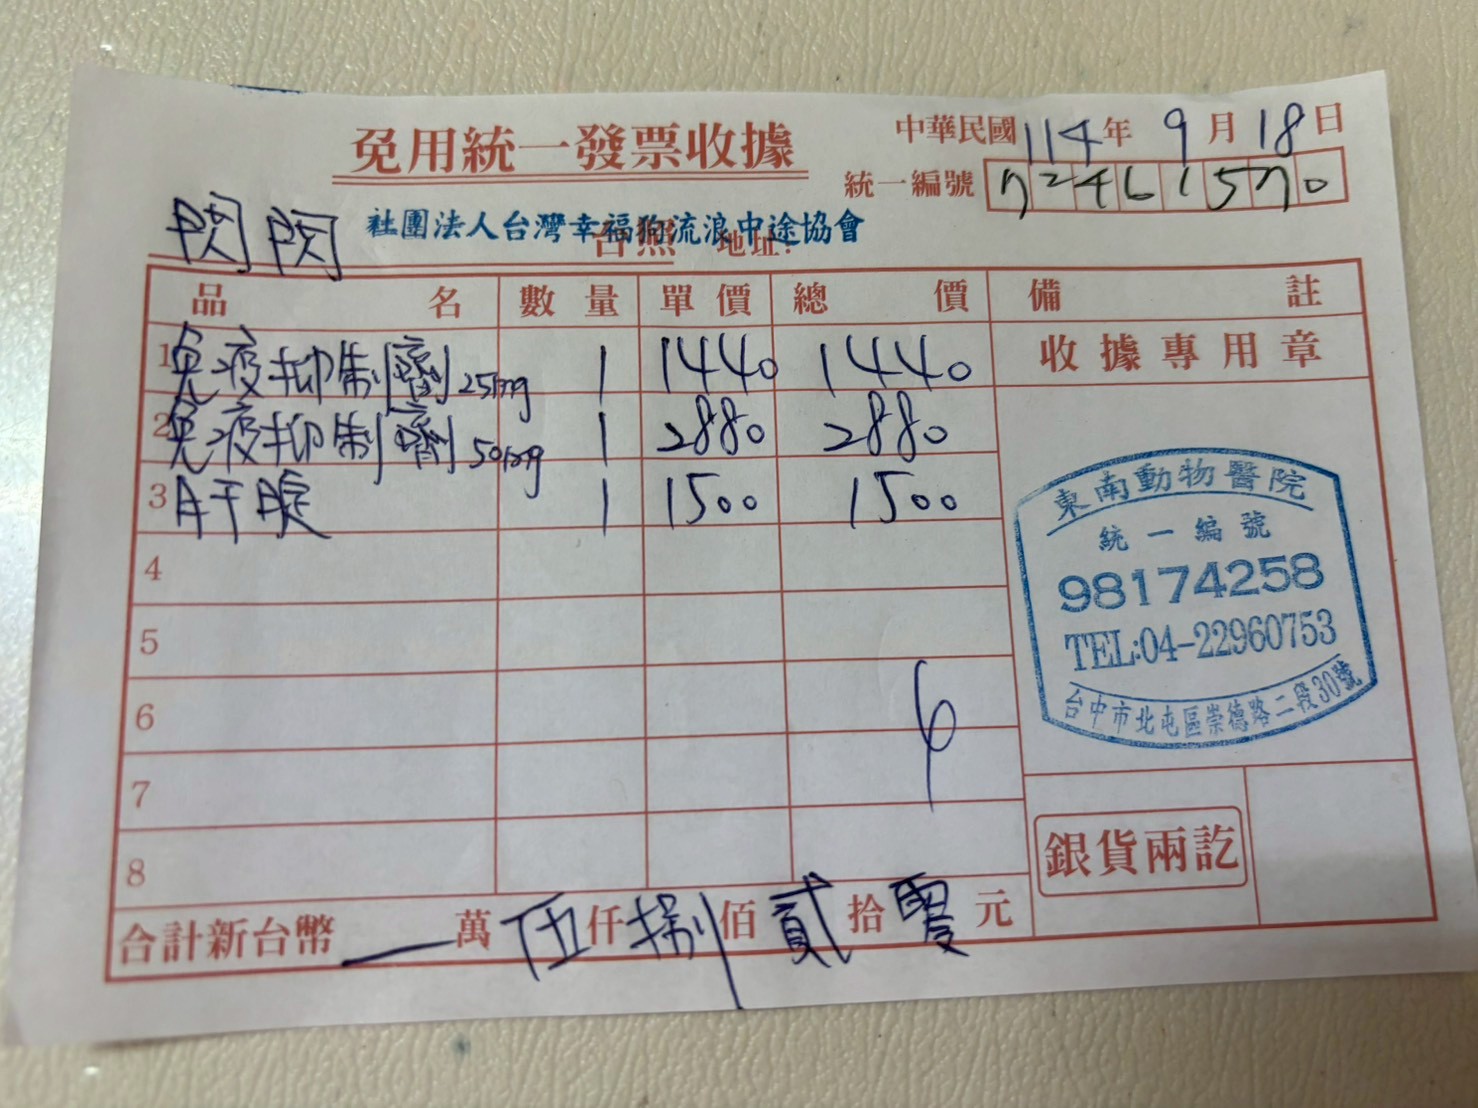 免用統一發票收據
中華民國114年9月18日
統一編號 72461570
閃閃 社團法人台灣幸福狗流浪中途協會
台照 地址:
品名 數量 單價 總價 備註
1 免疫抑制劑 25mg 1 1440 1440 收據專用章
2 免疫抑制劑 50mg 1 2880 2880
3 肝腚 1 1500 1500
4
5
6
7
8
東南動物醫院
統一編號
98174258
TEL:04-22960753
台中市北屯區崇德路二段30號
銀貨兩訖
合計新台幣 一 萬 伍 仟 捌 佰 貳 拾 零 元